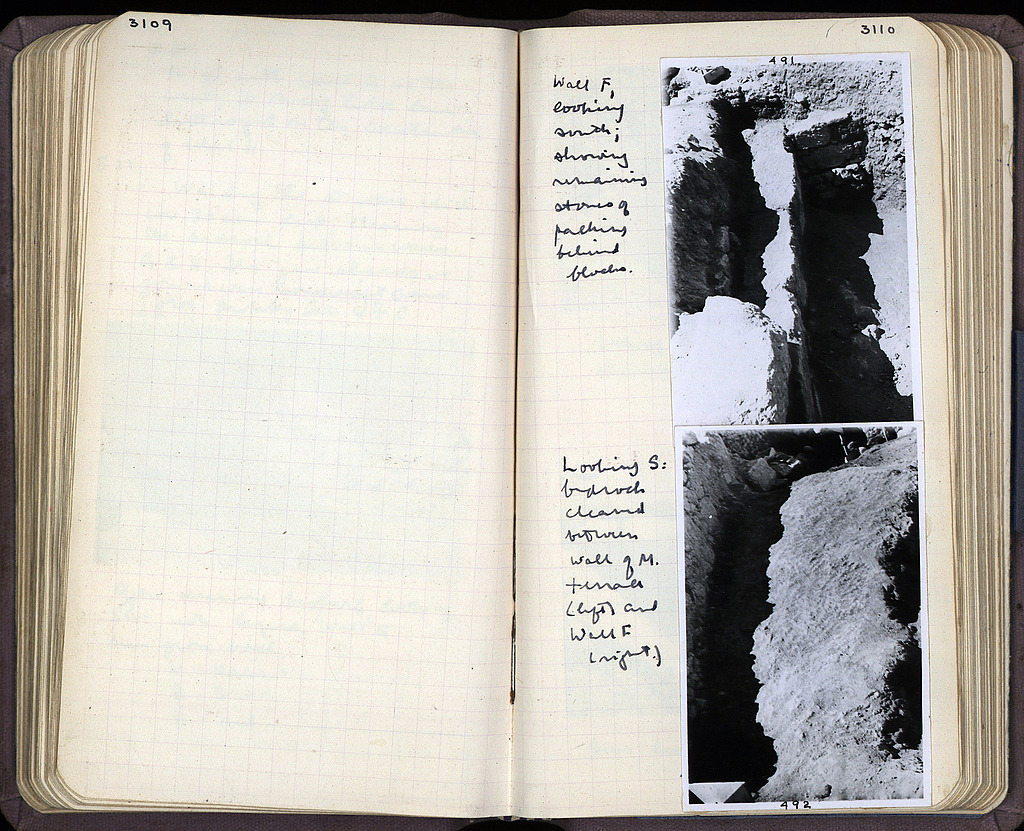 3109
3110
491
Wall F,
looking
south;
showing
remaining
stones of
packing
behind
blocks.
Looking S:
bedrock
cleared
between
Wall of M.
terrace
(left) and
Wall F
(right.)
492